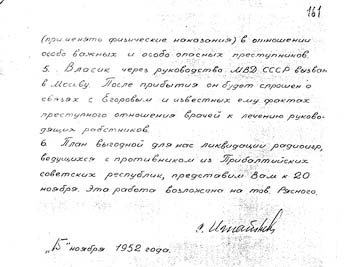 161
(применять физические наказания) в отношении
особо важных и особо опасных преступников.
5. Власик через руководство МВД СССР вызван
в Москву. После прибытия он будет спрошен о
связях с Егоровым и известных ему фактах
преступного отношения врачей к лечению руково-
дящих работников.
6. План выгодной для нас ликвидации радиоигр,
ведущихся с противником из Прибалтийских
советских республик, представим Вам к 20
ноября. Эта работа возложена на тов. Рясного.
"15" ноября 1952 года.